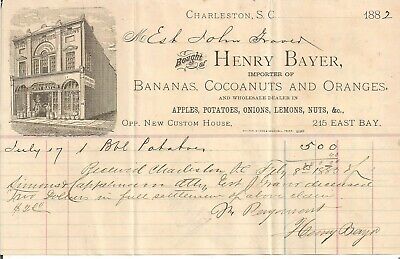 CHARLESTON, S. C. 1882
M Est John
Bought of HENRY BAYER,
IMPORTER OF
BANANAS, COCOANUTS AND ORANGES,
AND WHOLESALE DEALER IN
APPLES, POTATOES, ONIONS, LEMONS, NUTS, &c.,
OPP. NEW CUSTOM HOUSE, 215 EAST BAY.
July 17 1 Bbl Potatoes 5 00
Received Charleston SC
Simons & Cappelmann Atty Est J deceased
Dollars in full settlement of above claim
Henry Bayer